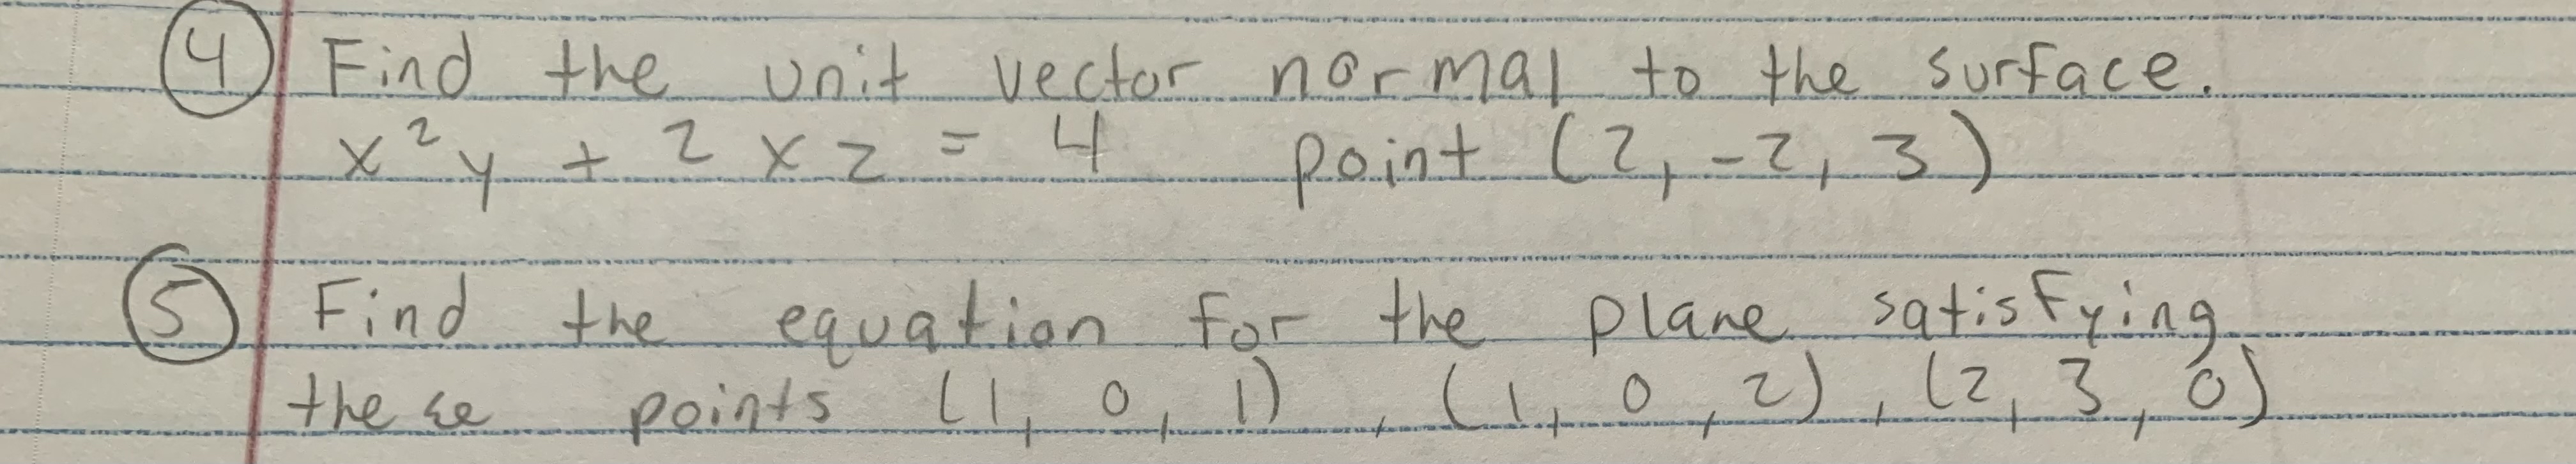 ④ Find the unit vector normal to the surface.
x²y + 2xz = 4 point (2, -2, 3)
⑤ Find the equation for the plane satisfying
these points (1, 0, 1), (1, 0, 2), (2, 3, 0)